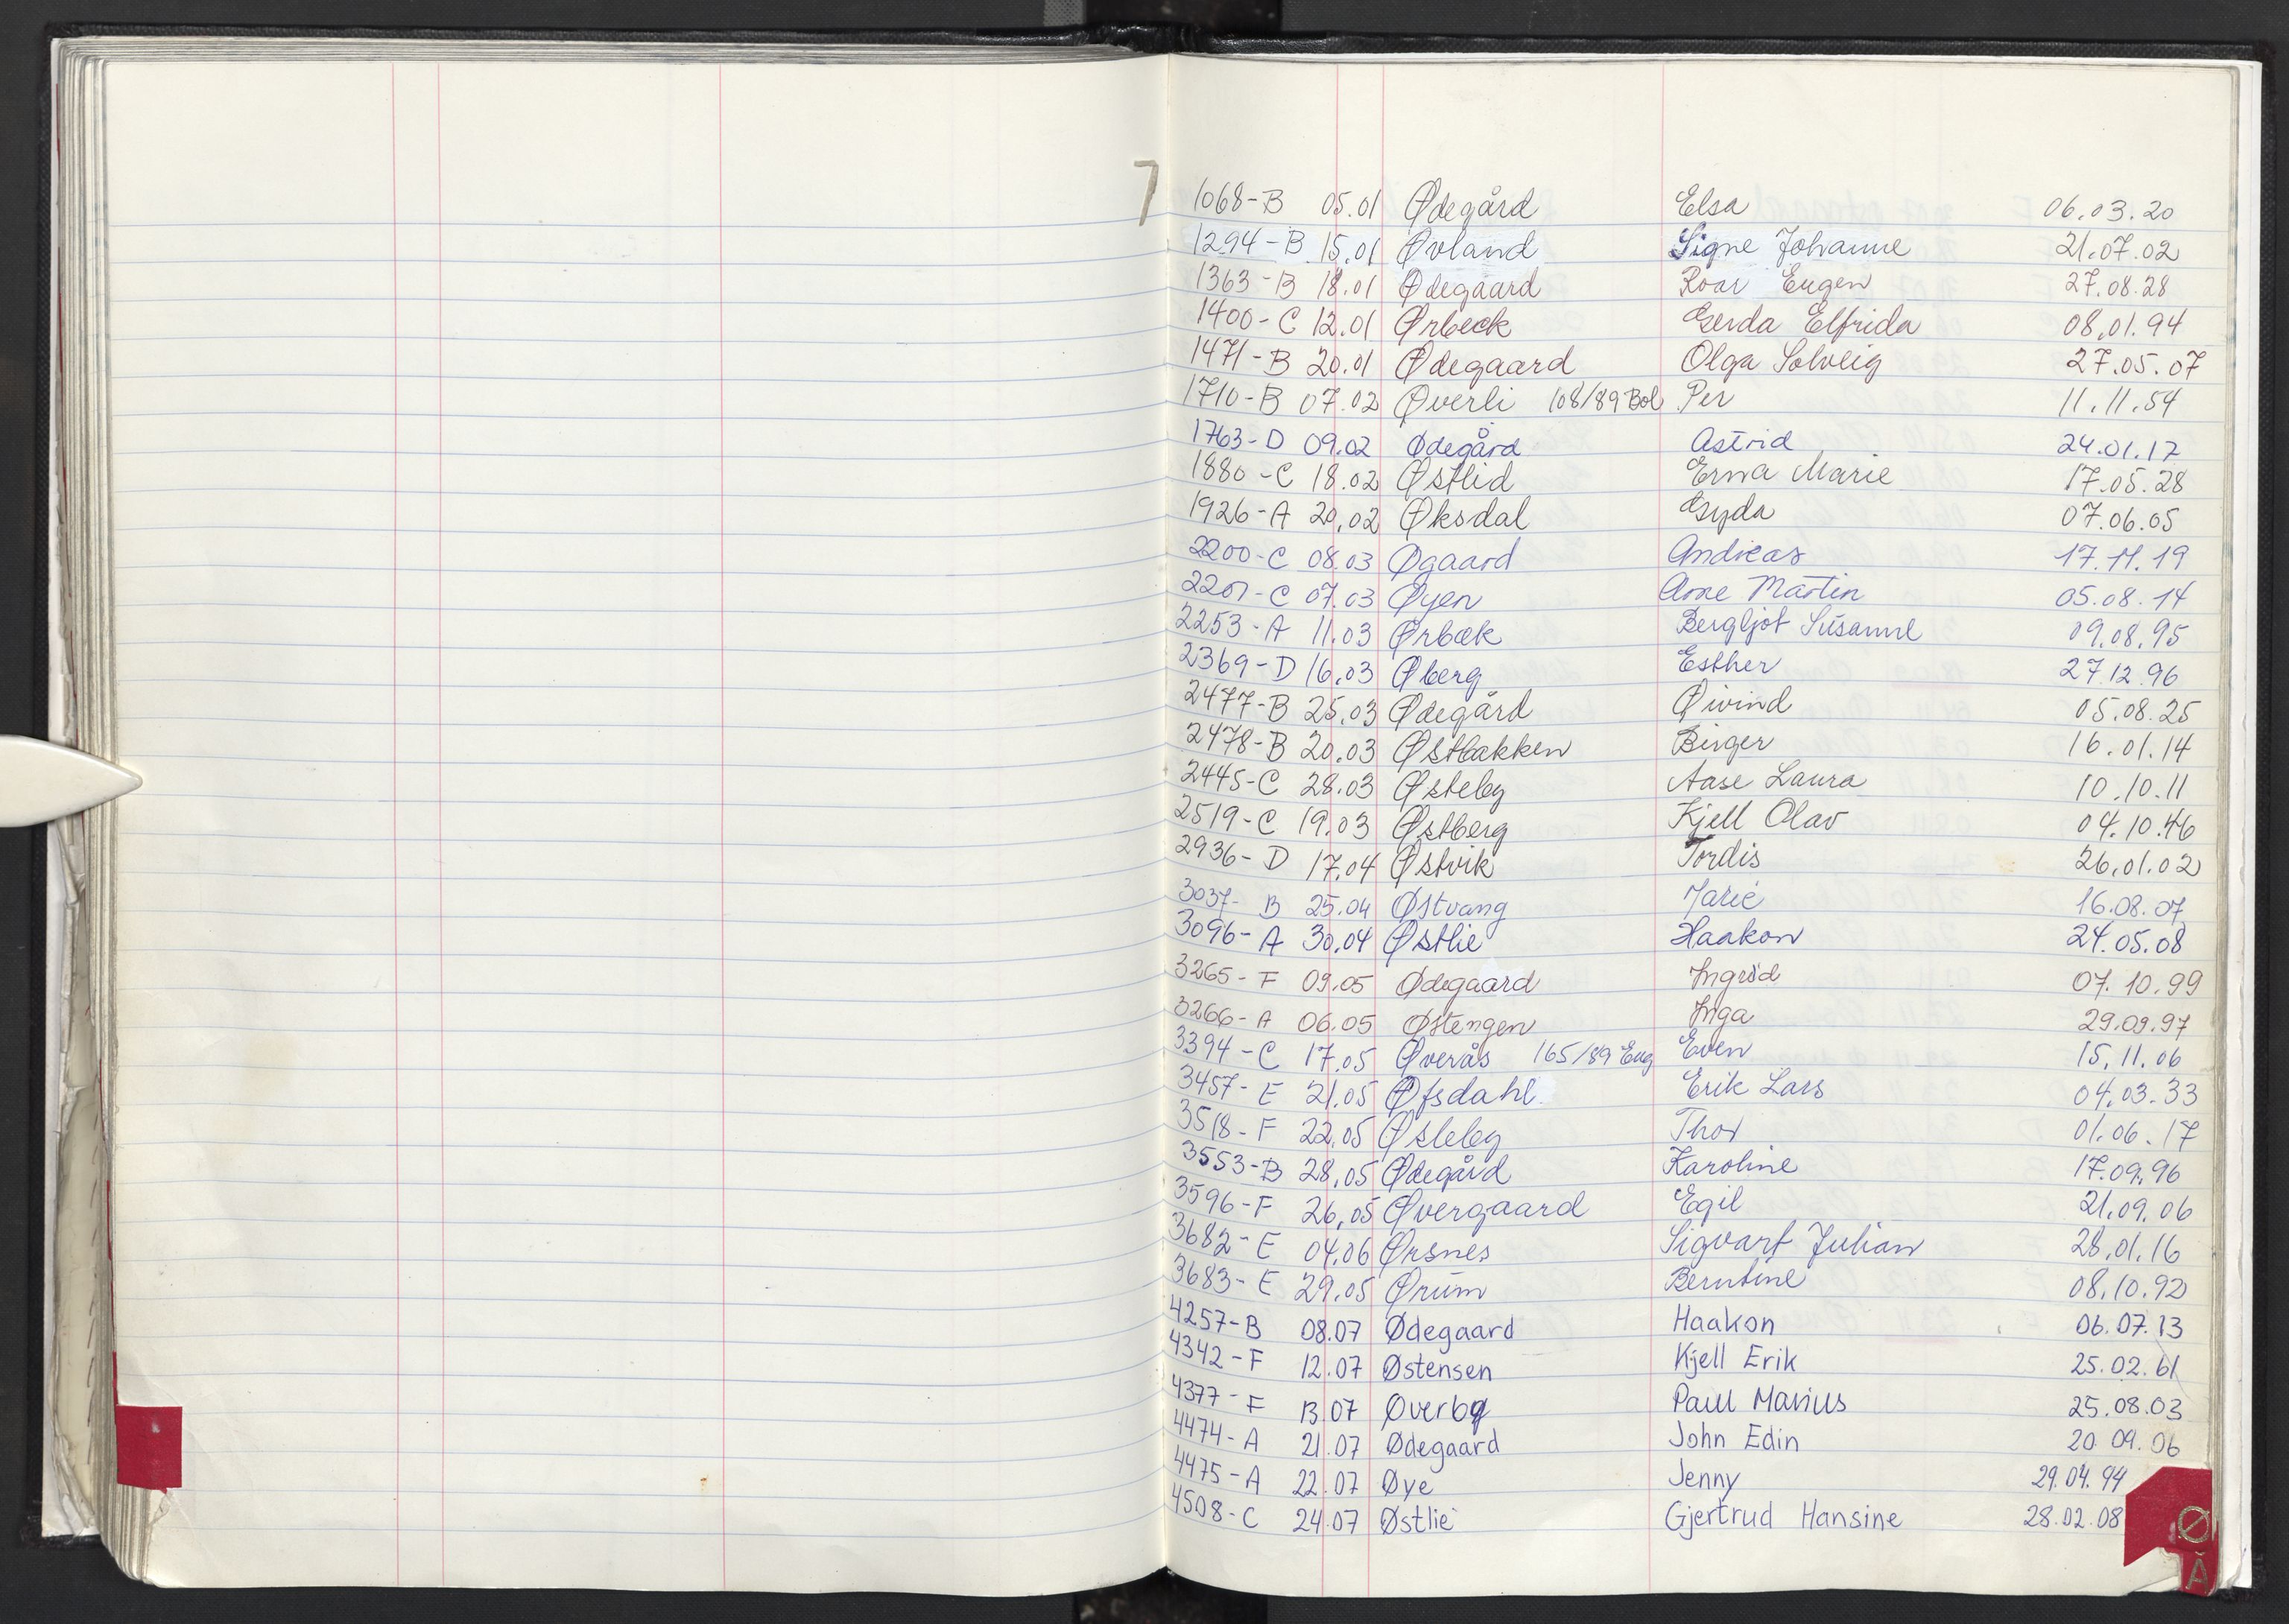 1068-B 05.01 Ødegård Elsa 06.03.20
1294-B 15.01 Øvland Signe Johanne 21.07.02
1363-B 18.01 Ødegaard Roar Eugen 27.08.28
1400-C 12.01 Ørbeck Gerda Elfrida 08.01.94
1471-B 20.01 Ødegaard Olga Solveig 27.05.07
1710-B 07.02 Øverli 108/89 Bol Per 11.11.54
1763-D 09.02 Ødegård Astrid 24.01.17
1880-C 18.02 Østlid Erna Marie 17.05.28
1926-A 20.02 Øksdal Gyda 07.06.05
2200-C 08.03 Øgaard Andreas 17.11.19
2201-C 07.03 Øyen Arne Martin 05.08.14
2253-A 11.03 Ørbæk Bergljot Susanne 09.08.95
2369-D 16.03 Øberg Esther 27.12.96
2477-B 25.03 Ødegård Øivind 05.08.25
2478-B 20.03 Østbakken Birger 16.01.14
2445-C 28.03 Østeby Aase Laura 10.10.11
2519-C 19.03 Østberg Kjell Olav 04.10.46
2936-D 17.04 Østvik Tordis 26.01.02
3037-B 25.04 Østvang Marie 16.08.07
3096-A 30.04 Østlie Haakon 24.05.08
3265-F 09.05 Ødegaard Ingrid 07.10.99
3266-A 06.05 Østengen Inga 29.09.97
3394-C 17.05 Øverås 165/89 Eng Even 15.11.06
3457-E 21.05 Øfsdahl Erik Lars 04.03.33
3518-F 22.05 Østeby Thor 01.06.17
3553-B 28.05 Ødegård Karoline 17.09.96
3596-F 26.05 Øvergaard Egil 21.09.06
3682-E 04.06 Ørsnes Sigvart Julian 28.01.16
3683-E 29.05 Ørum Berntine 08.10.92
4257-B 08.07 Ødegaard Haakon 06.07.13
4342-F 12.07 Østensen Kjell Erik 25.02.61
4377-F 13.07 Øverby Paul Marius 25.08.03
4474-A 21.07 Ødegaard John Edin 20.09.06
4475-A 22.07 Øye Jenny 29.04.94
4508-C 24.07 Østlie Gjertrud Hansine 28.02.08
Ø
Å